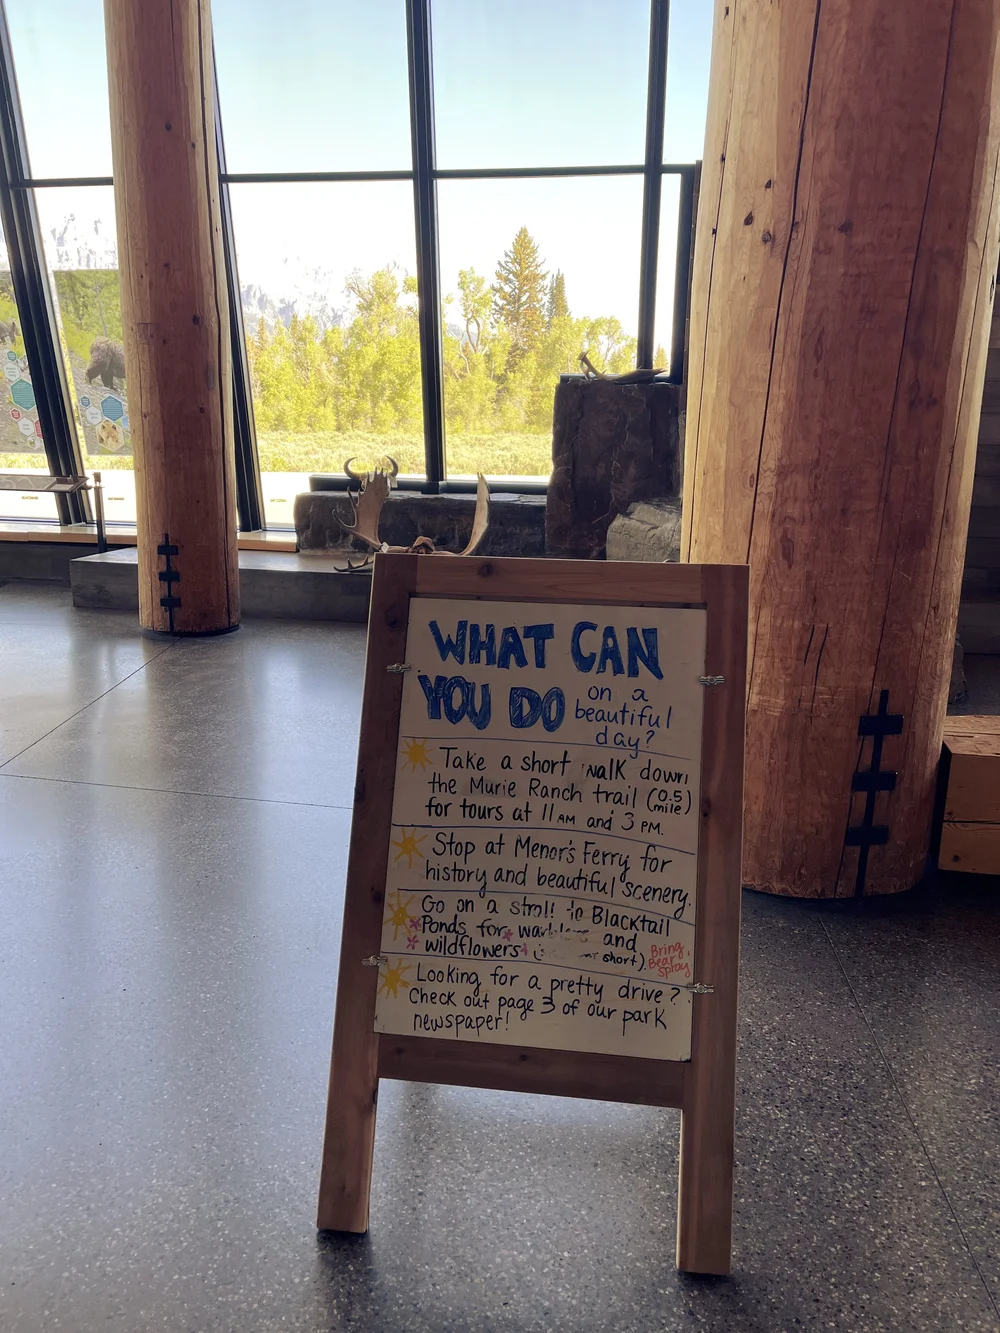 WHAT CAN
YOU DO on a
beautiful
day?
Take a short walk down
the Murie Ranch trail (0.5 mile)
for tours at 11 AM and 3 PM.
Stop at Menor's Ferry for
history and beautiful scenery.
Go on a stroll to Blacktail
Ponds for warblers and
wildflowers short).
Bring
Bear
Spray
Looking for a pretty drive?
Check out page 3 of our park
newspaper!